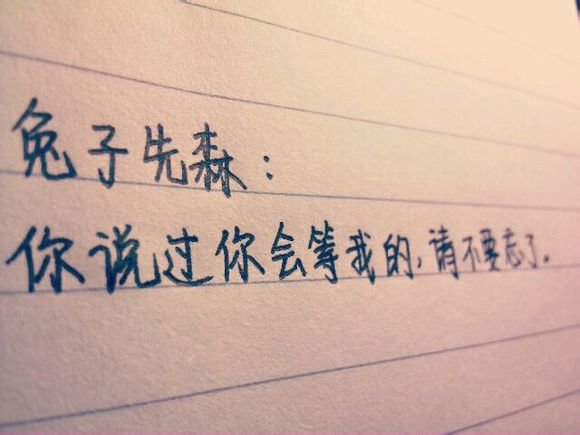 兔子先森：
你说过你会等我的，请不要忘了。